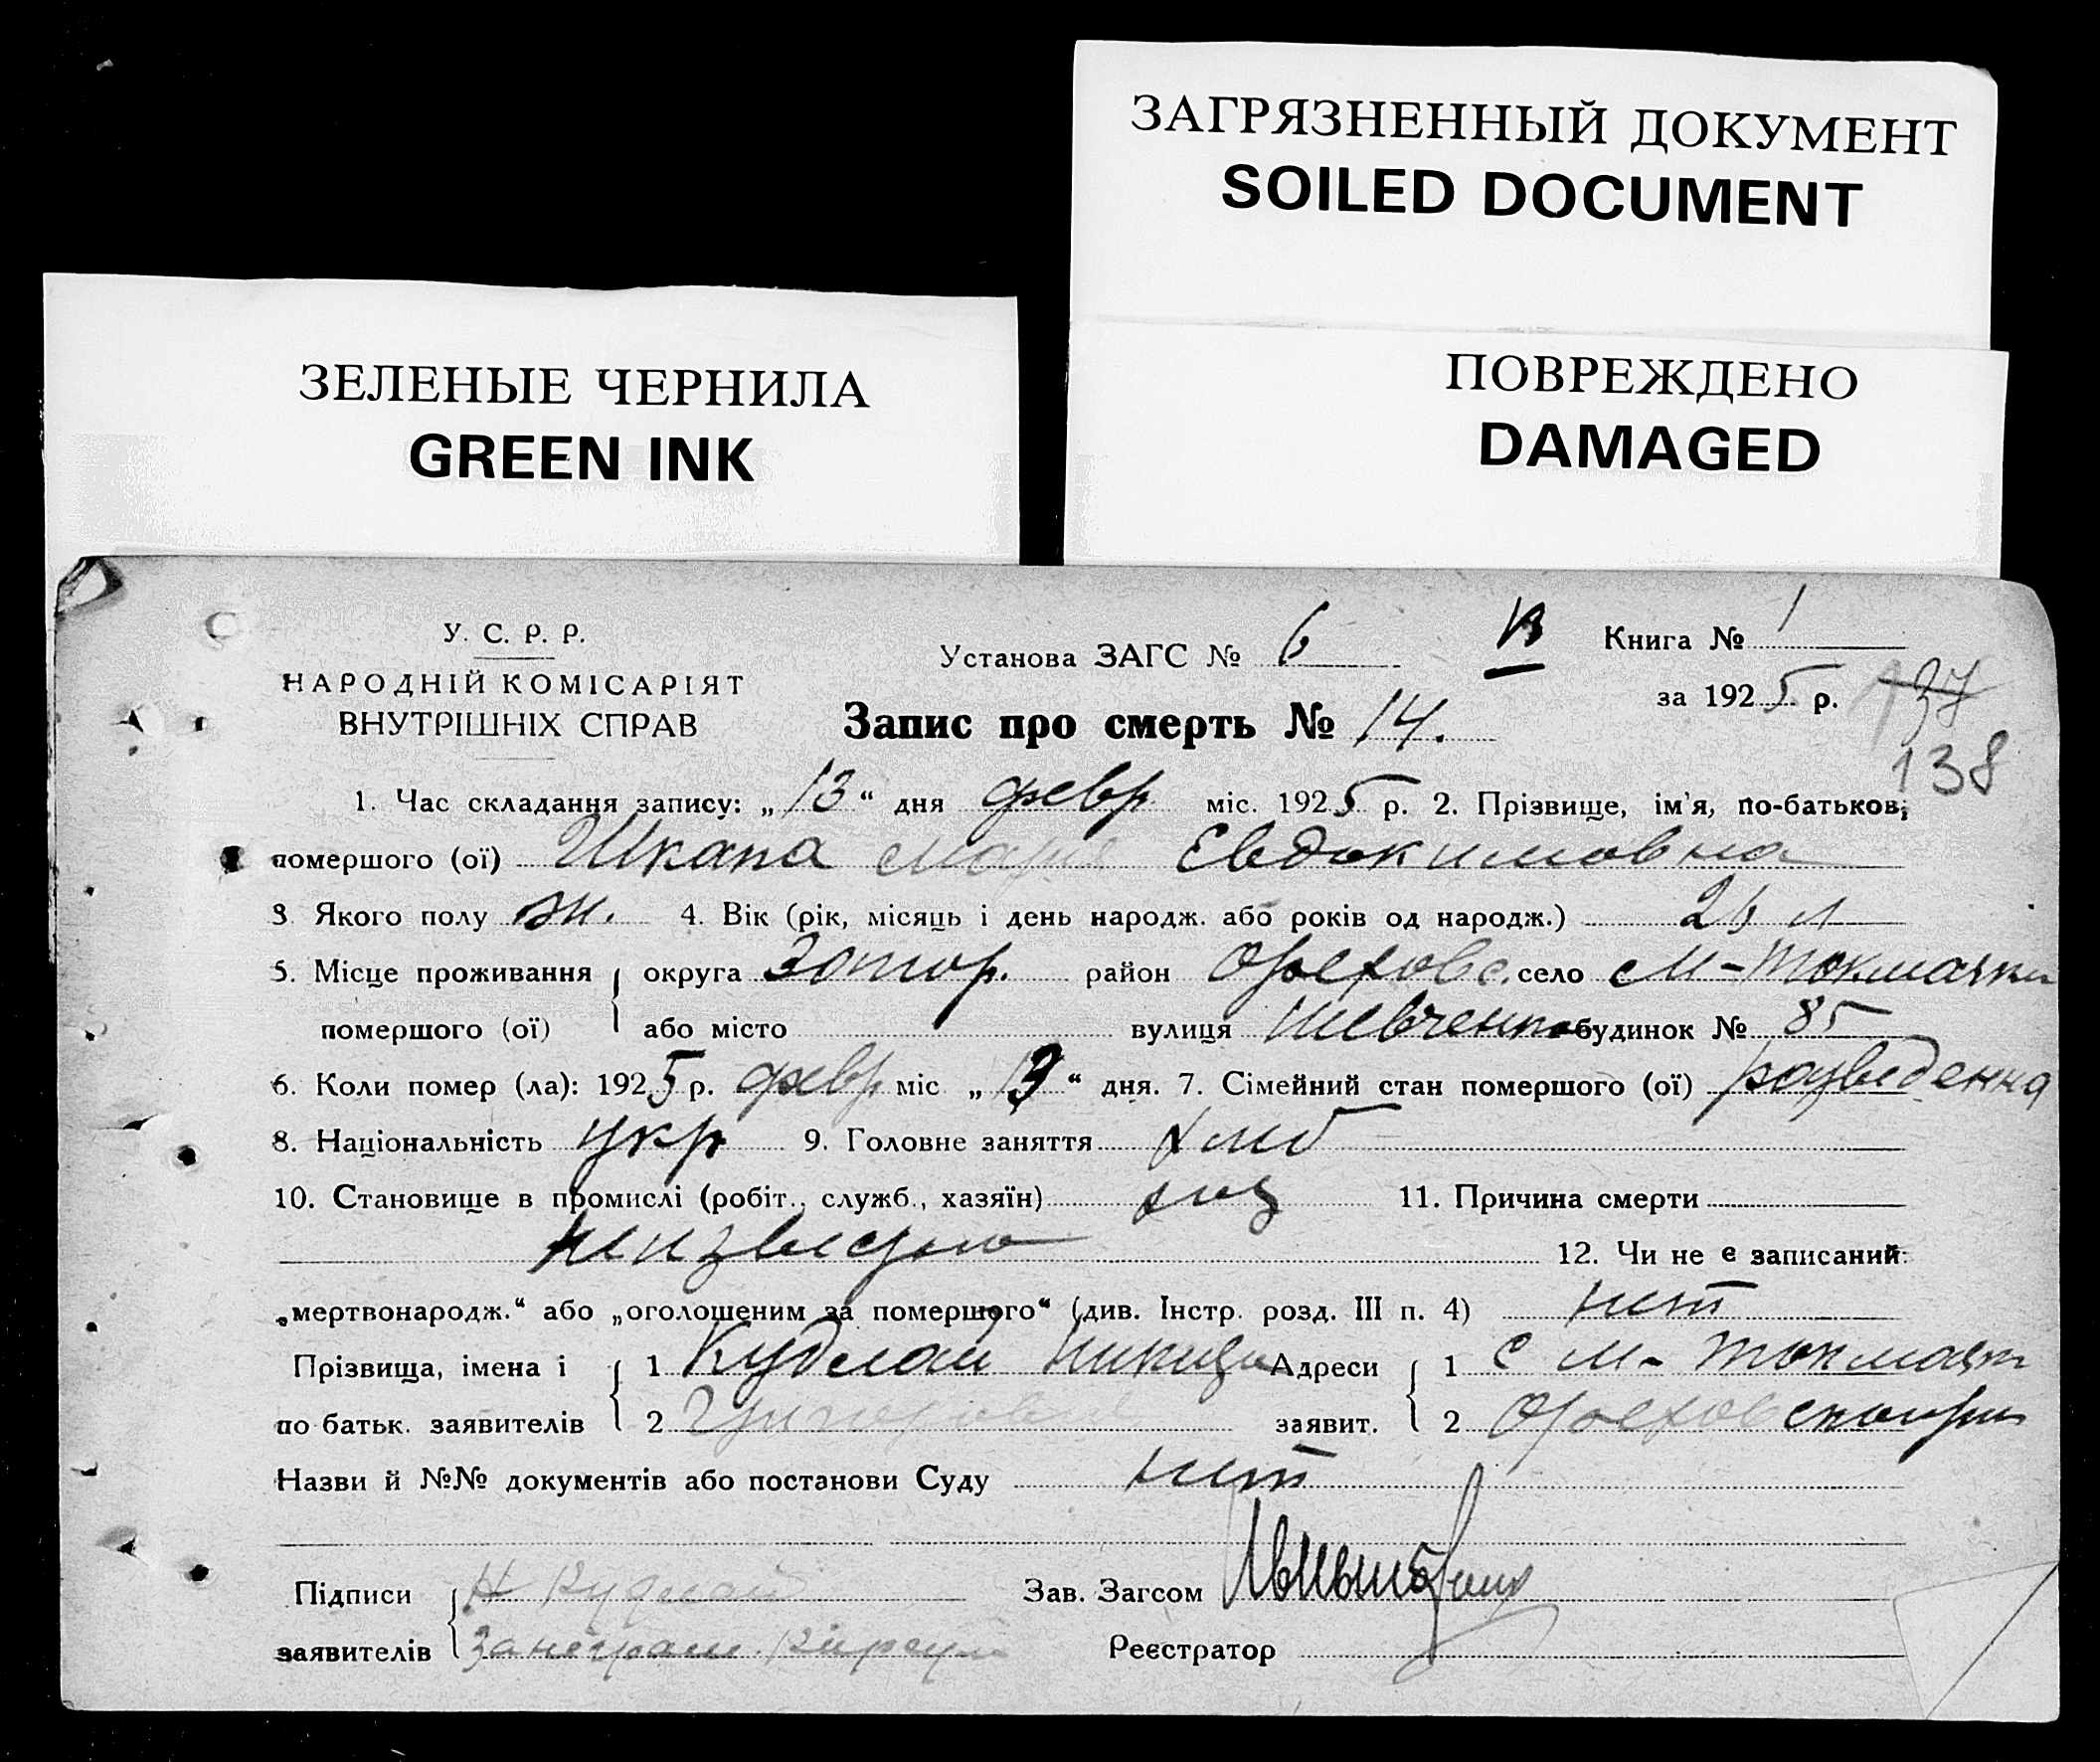 ЗАГРЯЗНЕННЫЙ ДОКУМЕНТ
SOILED DOCUMENT
ЗЕЛЕНЫЕ ЧЕРНИЛА
GREEN INK
ПОВРЕЖДЕНО
DAMAGED
У. С. Р. Р.
НАРОДНІЙ КОМІСАРІЯТ
ВНУТРІШНІХ СПРАВ
Установа ЗАГС № 6
Книга № 1
за 1925 р.
137
138
Запис про смерть № 14.
1. Час складання запису: „13“ дня февр міс. 1925 р. 2. Прізвище, ім'я, по-батькові
помершого (ої) Шкапа Евдокимовна
3. Якого полу ж. 4. Вік (рік, місяць і день народж. або років од народж.) 26 л
5. Місце проживання округа Запор. район Орехово. село М-Токмачки
помершого (ої) або місто вулиця Шевченко будинок № 85
6. Коли помер (ла): 1925 р. февр міс „13“ дня. 7. Сімейний стан помершого (ої) разведенна
8. Національність укр 9. Головне заняття хліб
10. Становище в промислі (робіт., служб., хазяїн) хоз 11. Причина смерти
неизвестно 12. Чи не є записаний:
„мертвонародж.“ або „оголошеним за помершого“ (див. Інстр. розд. III п. 4) нет
Прізвища, імена і 1 Кудлай Никита Адреси 1 с М-Токмачк
по батьк. заявителів 2 Григорович заявит. 2 Ореховского
Назви й №№ документів або постанови Суду нет
Підписи Н Кудлай Зав. Загсом
заявителів За неграм. Реєстратор